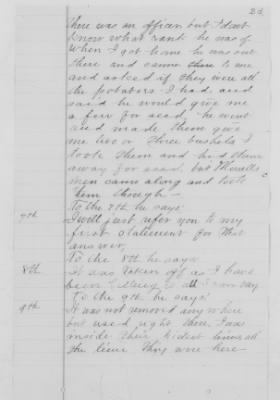 22
there was an officer but I dont
know what rank he was of
When I got home he was out
there and came there to me
and asked if they were all
the potatoes I had, and
said he would give me
a few for seed he went
and made them give
me two or three bushels I
took them and hid them
away for seed, but
men came along and took
them though —
To the 7th he says
7th I will just refer you to my
first statement for that
answer,
To the 8th he says
8th It was taken off as I have
been telling is all I can say
To the 9th he says
9th It was not removed any where
but used right there I was
inside their picket lines all
the time they were here —